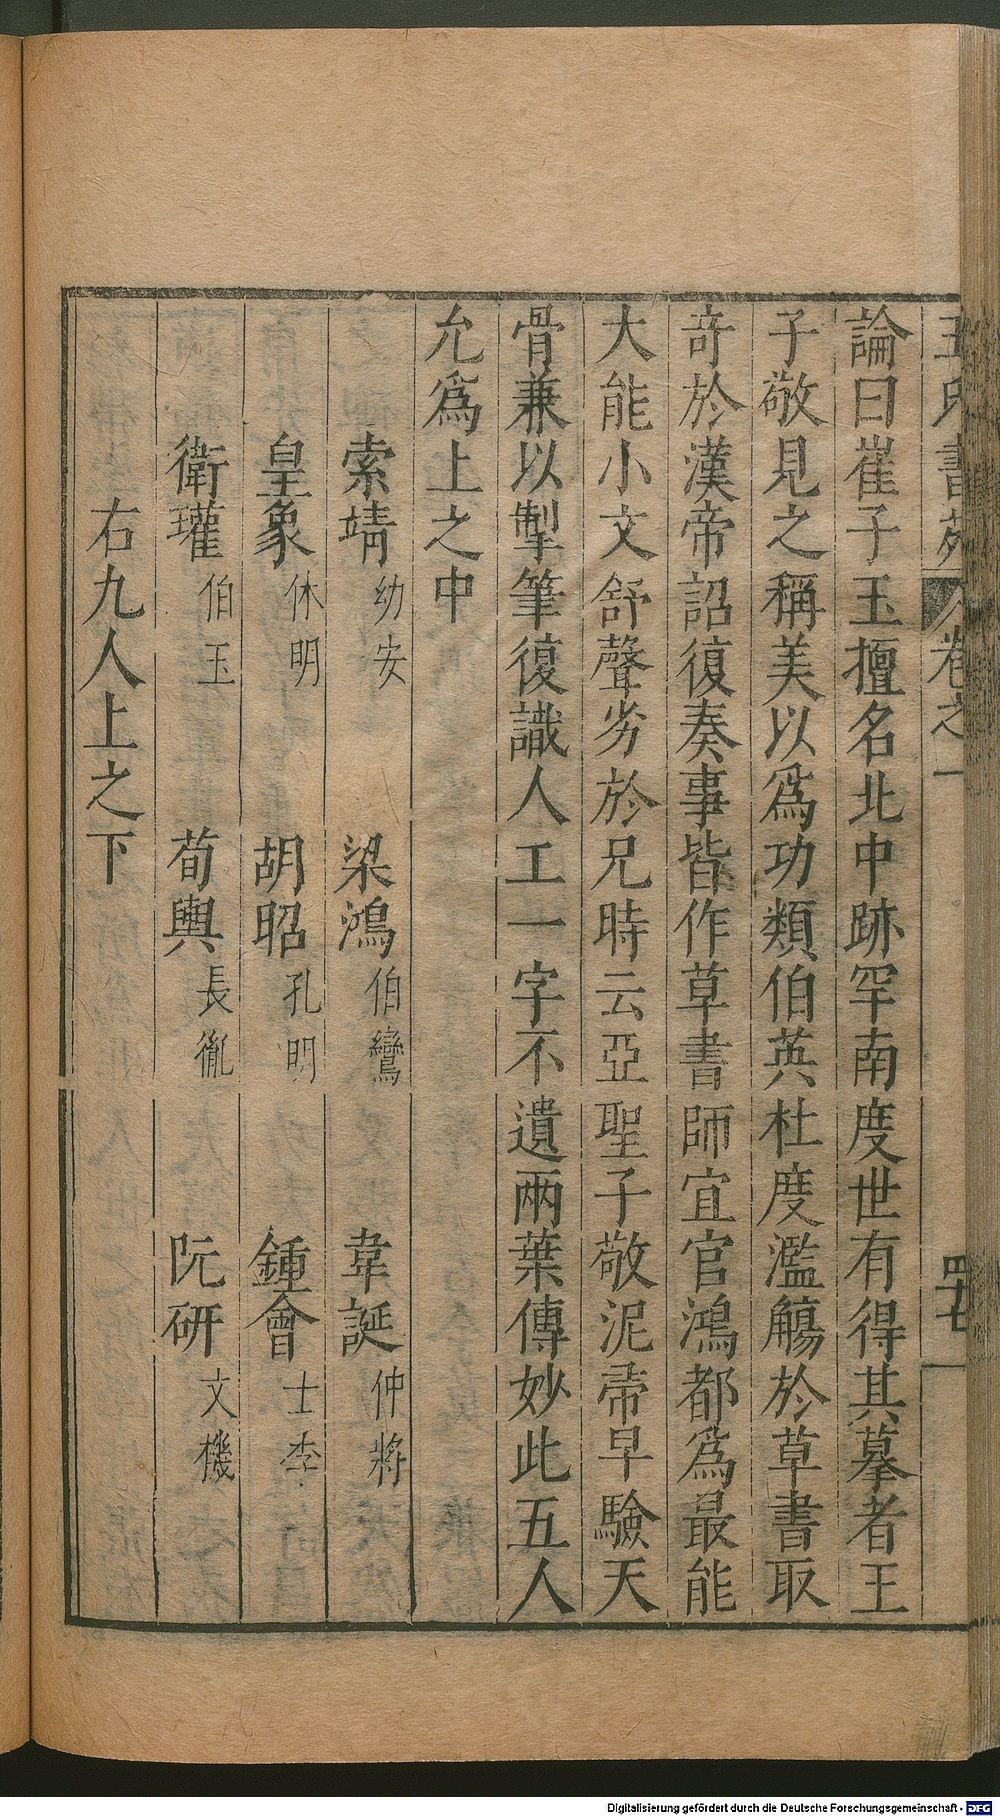 王氏書苑 卷之一 四十七
論曰崔子玉擅名北中跡罕南度世有得其摹者王
子敬見之稱美以爲功類伯英杜度濫觴於草書取
奇於漢帝詔復奏事皆作草書師宜官鴻都爲最能
大能小文舒聲劣於兄時云亞聖子敬泥帚早驗天
骨兼以掣筆復識人工一字不遺兩葉傳妙此五人
允爲上之中
索靖幼安 梁鴻伯鸞 韋誕仲將
皇象休明 胡昭孔明 鍾會士季
衛瓘伯玉 荀輿長胤 阮研文機
右九人上之下
Digitalisierung gefördert durch die Deutsche Forschungsgemeinschaft - DFG